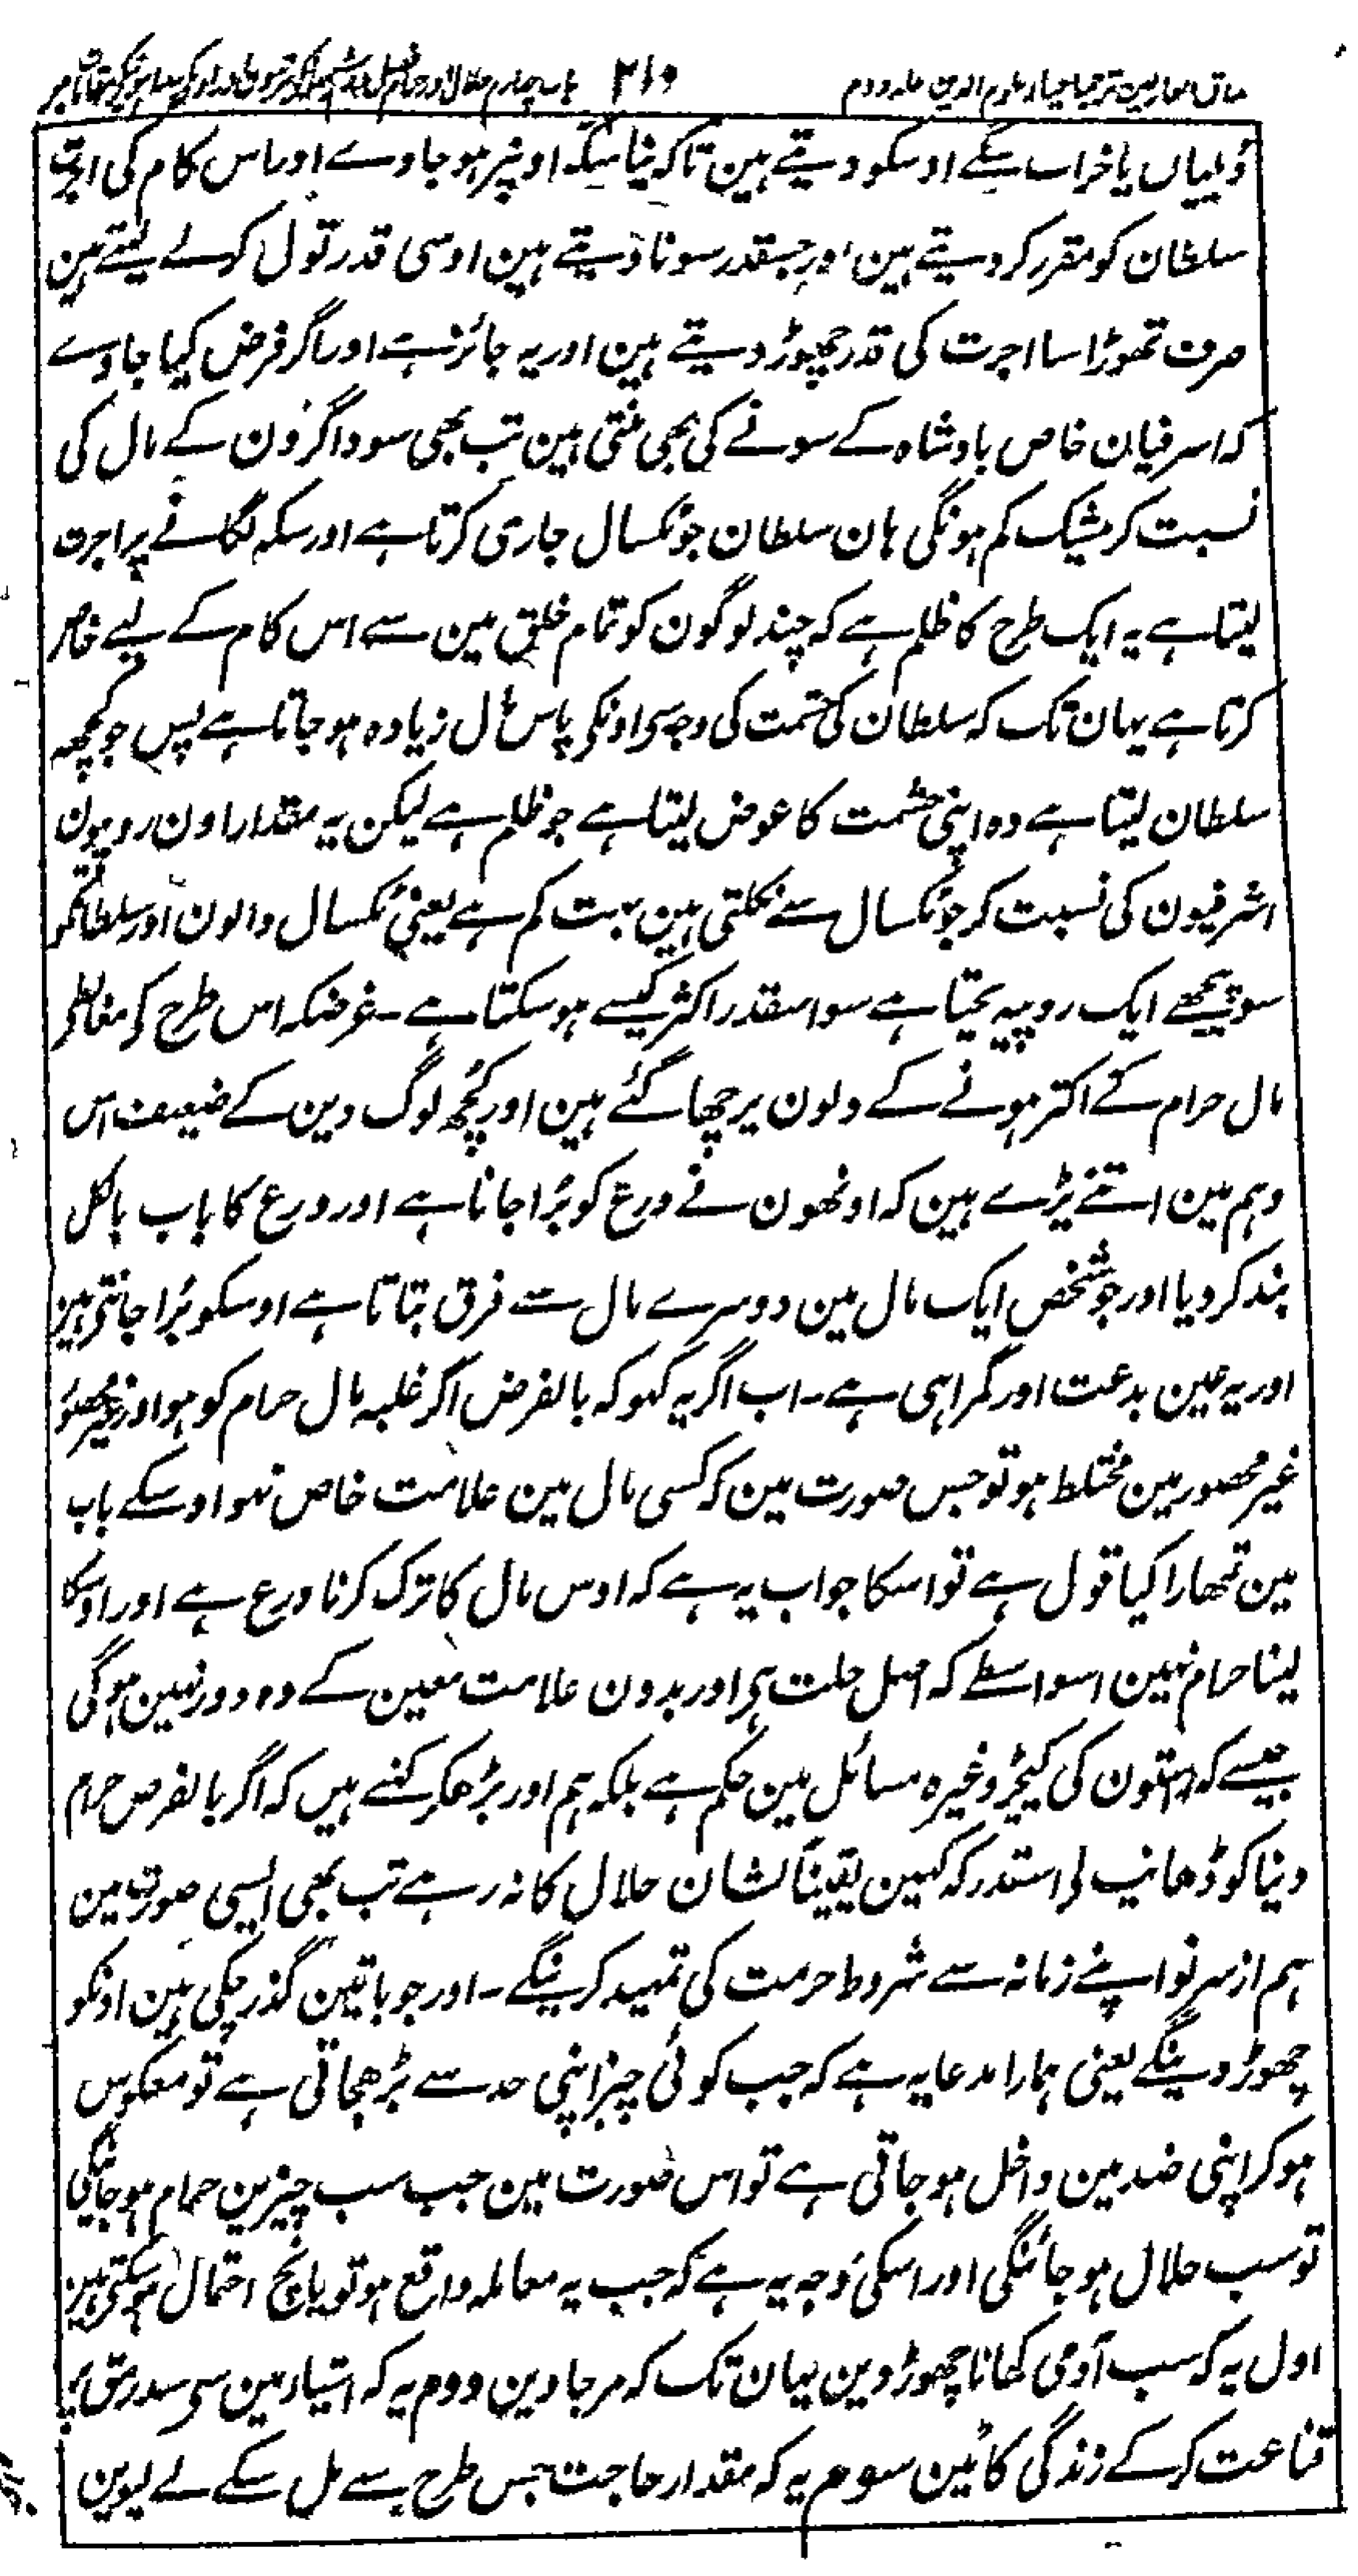 مذاق العارفین ترجمہ احیاء علوم الدین جلد دوم ۲۱۰ باب چہارم حلال و حرام
ڈلیاں یا خراب سکے اوسکو دیتے ہین تاکہ نیا سکہ اونپر ہو جاوے اور اس کام کی اجرت
سلطان کو مقرر کر دیتے ہین اور جسقدر سونا دیتے ہین اوسی قدر تول کر لے لیتے ہین
صرف تھوڑا سا اجرت کی قدر چھوڑ دیتے ہین اور یہ جائز ہے اور اگر فرض کیا جاوے
کہ اسرفیان خاص بادشاہ کے سونے کی بھی بنتی ہین تب بھی سوداگرون کے مال کی
نسبت کر بیشک کم ہونگی ہان سلطان جو ٹکسال جاری کرتا ہے اور سکہ لگانے پر اجرت
لیتا ہے یہ ایک طرح کا ظلم ہے کہ چند لوگون کو تمام خلق مین سے اس کام کے لیے خاص
کرتا ہے یہان تک کہ سلطان کی حشمت کی وجہ سی اونکی پاس مال زیادہ ہو جاتا ہے پس جو کچھہ
سلطان لیتا ہے وہ اپنی حشمت کا عوض لیتا ہے جو ظلم ہے لیکن یہ مقدار اون روپیون
اشرفیون کی نسبت کر جو ٹکسال سے نکلتی ہین بہت کم ہے یعنی ٹکسال والون اور سلطانکو
سو پیچھے ایک روپیہ بچتا ہے سو اسقدر اکثر کیسے ہو سکتا ہے ۔ غرضکہ اس طرح کی مغالطے
مال حرام کے اکثر ہونے کے دلون پر چھا گئے ہین اور کچھ لوگ دین کے ضعیف اس
وہم مین اتنے پڑے ہین کہ اونھون نے ورع کو بُرا جانا ہے اور ورع کا باب بالکل
بند کر دیا اور جو شخص ایک مال مین دوسرے مال سے فرق بتاتا ہے اوسکو بُرا جانتی ہین
اور یہ عین بدعت اور گمراہی ہے ۔ اب اگر یہ کہو کہ بالفرض اگر غلبہ مال حرام کو ہو اور غیر محصور
غیر محصور مین مختلط ہو تو جس صورت مین کہ کسی مال مین علامت خاص نہو اوسکے باب
مین تمھارا کیا قول ہے تو اسکا جواب یہ ہے کہ اوس مال کا ترک کرنا ورع ہے اور اوسکا
لینا حرام نہین اسواسطے کہ اصل حلت ہی اور بدون علامت معین کے وہ دور نہین ہو گی
جیسے کہ رستون کی کیچڑ وغیرہ مسائل مین حکم ہے بلکہ ہم اور بڑھکر کہتے ہیں کہ اگر بالفرض حرام
دنیا کو ڈھانپ لی اسقدر کہ کہین یقیناً نشان حلال کا نہ رہے تب بھی ایسی صورت مین
ہم از سر نو اپنے زمانہ سے شروط حرمت کی تمہید کرینگے ۔ اور جو باتین گذر چکی ہین اونکو
چھوڑ دینگے یعنی ہمارا مدعا یہ ہے کہ جب کوئی چیز اپنی حد سے بڑھجاتی ہے تو معکوس
ہو کر اپنی ضد مین داخل ہو جاتی ہے تو اس صورت مین جب سب چیزین حرام ہو جائنگی
تو سب حلال ہو جائنگی اور اسکی وجہ یہ ہے کہ جب یہ معاملہ واقع ہو تو پانچ احتمال ہو سکتی ہین
اول یہ کہ سب آدمی کھانا چھوڑ دین یہان تک کہ مر جاوین دوم یہ کہ اشیاء مین سی سد رمق پر
قناعت کر کے زندگی کاٹین سوم یہ کہ مقدار حاجت جس طرح سے مل سکے لے لیوین